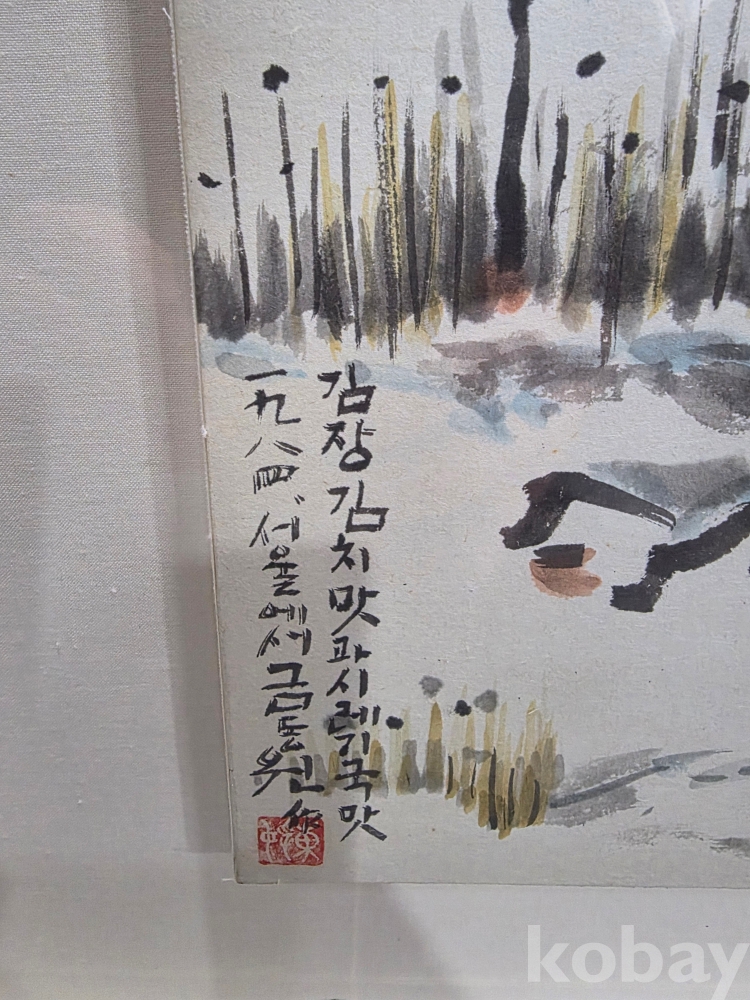 김장김치맛과시레기국맛
一九八四、서울에서금동원作
kobay